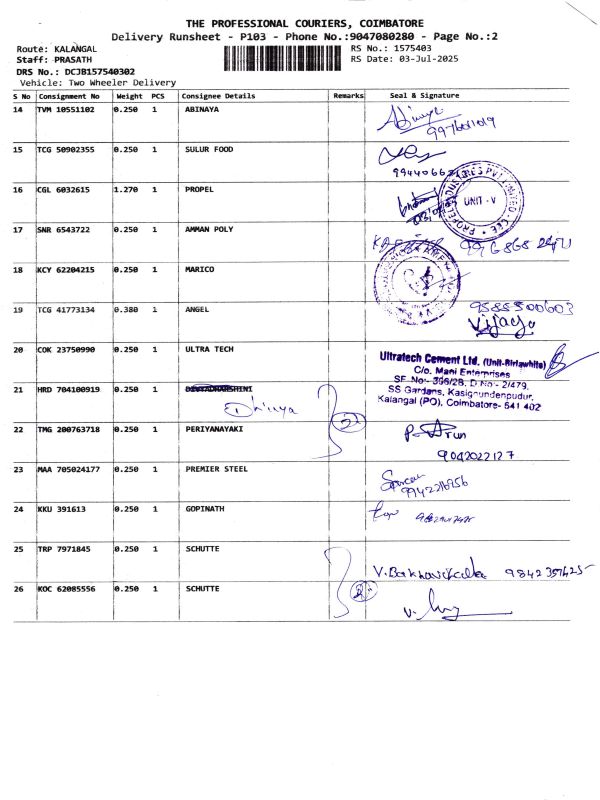 THE PROFESSIONAL COURIERS, COIMBATORE
Delivery Runsheet - P103 - Phone No.:9047080280 - Page No.:2
Route: KALANGAL
Staff: PRASATH
DRS No.: DCJB157540302
Vehicle: Two Wheeler Delivery
RS No.: 1575403
RS Date: 03-Jul-2025
S No Consignment No Weight PCS Consignee Details Remarks Seal & Signature
14 TVM 10551102 0.250 1 ABINAYA
15 TCG 50902355 0.250 1 SULUR FOOD
16 CGL 6032615 1.270 1 PROPEL
UNIT - V
17 SNR 6543722 0.250 1 AMMAN POLY
18 KCY 62204215 0.250 1 MARICO
19 TCG 41773134 0.380 1 ANGEL
9585500603
Vijaya
20 COK 23750990 0.250 1 ULTRA TECH
Ultratech Cement Ltd. (Unit-Birlawhite)
C/o. Mani Enterprises
SF No:- 396/2B, D.No - 2/479,
SS Gardens, Kasigoundenpudur,
Kalangal (PO), Coimbatore- 641 402
21 HRD 704100919 0.250 1
Dhivya
22 TMG 200763718 0.250 1 PERIYANAYAKI
P. Arun
9042022127
23 MAA 705024177 0.250 1 PREMIER STEEL
24 KKU 391613 0.250 1 GOPINATH
25 TRP 7971845 0.250 1 SCHUTTE
26 KOC 62085556 0.250 1 SCHUTTE